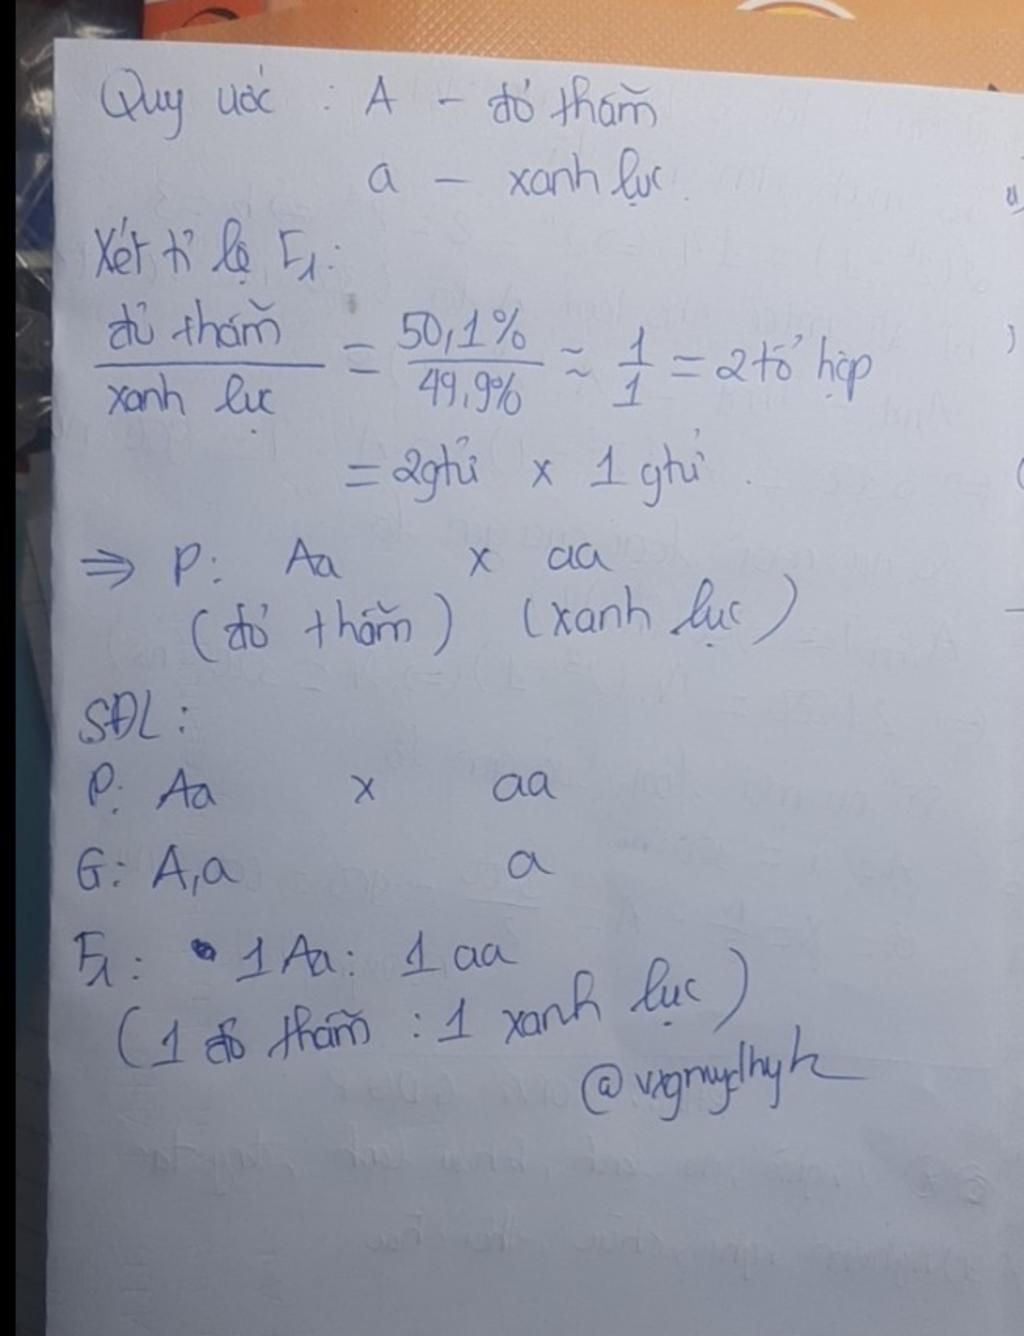 Quy ước : A - đỏ thẫm
a - xanh lục.
Xét tỉ lệ F1:
đỏ thẫm / xanh lục = 50,1% / 49,9% ≈ 1/1 = 2 tổ hợp
= 2gtử x 1 gtử.
⇒ P: Aa x aa
(đỏ thẫm) (xanh lục)
SĐL:
P: Aa x aa
G: A,a a
F1: 1 Aa: 1 aa
(1 đỏ thẫm : 1 xanh lục)